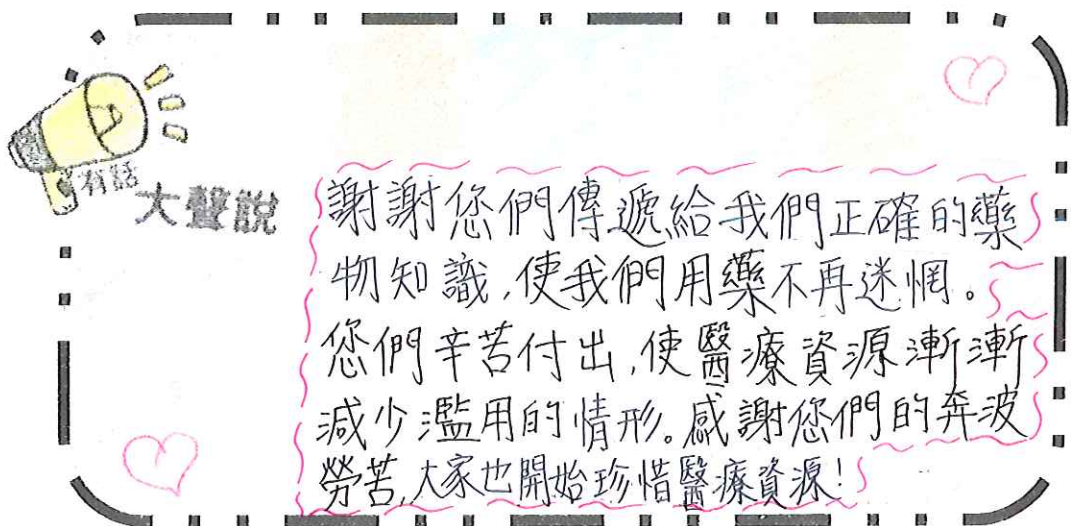 有話
大聲說
謝謝您們傳遞給我們正確的藥
物知識,使我們用藥不再迷惘。
您們辛苦付出,使醫療資源漸漸
減少濫用的情形。感謝您們的奔波
勞苦,大家也開始珍惜醫療資源!